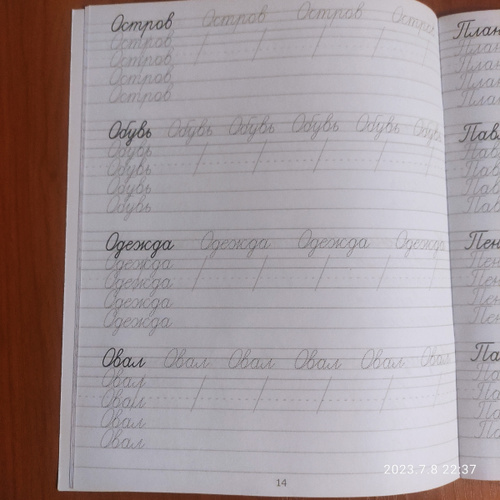 Остров Остров Остров Остров
Остров
Остров
Остров
Остров
Обувь Обувь Обувь Обувь Обувь Обувь
Обувь
Обувь
Обувь
Обувь
Одежда Одежда Одежда Одежда
Одежда
Одежда
Одежда
Одежда
Овал Овал Овал Овал Овал Овал
Овал
Овал
Овал
Овал
14
План
План
План
План
План
2023.7.8 22:37